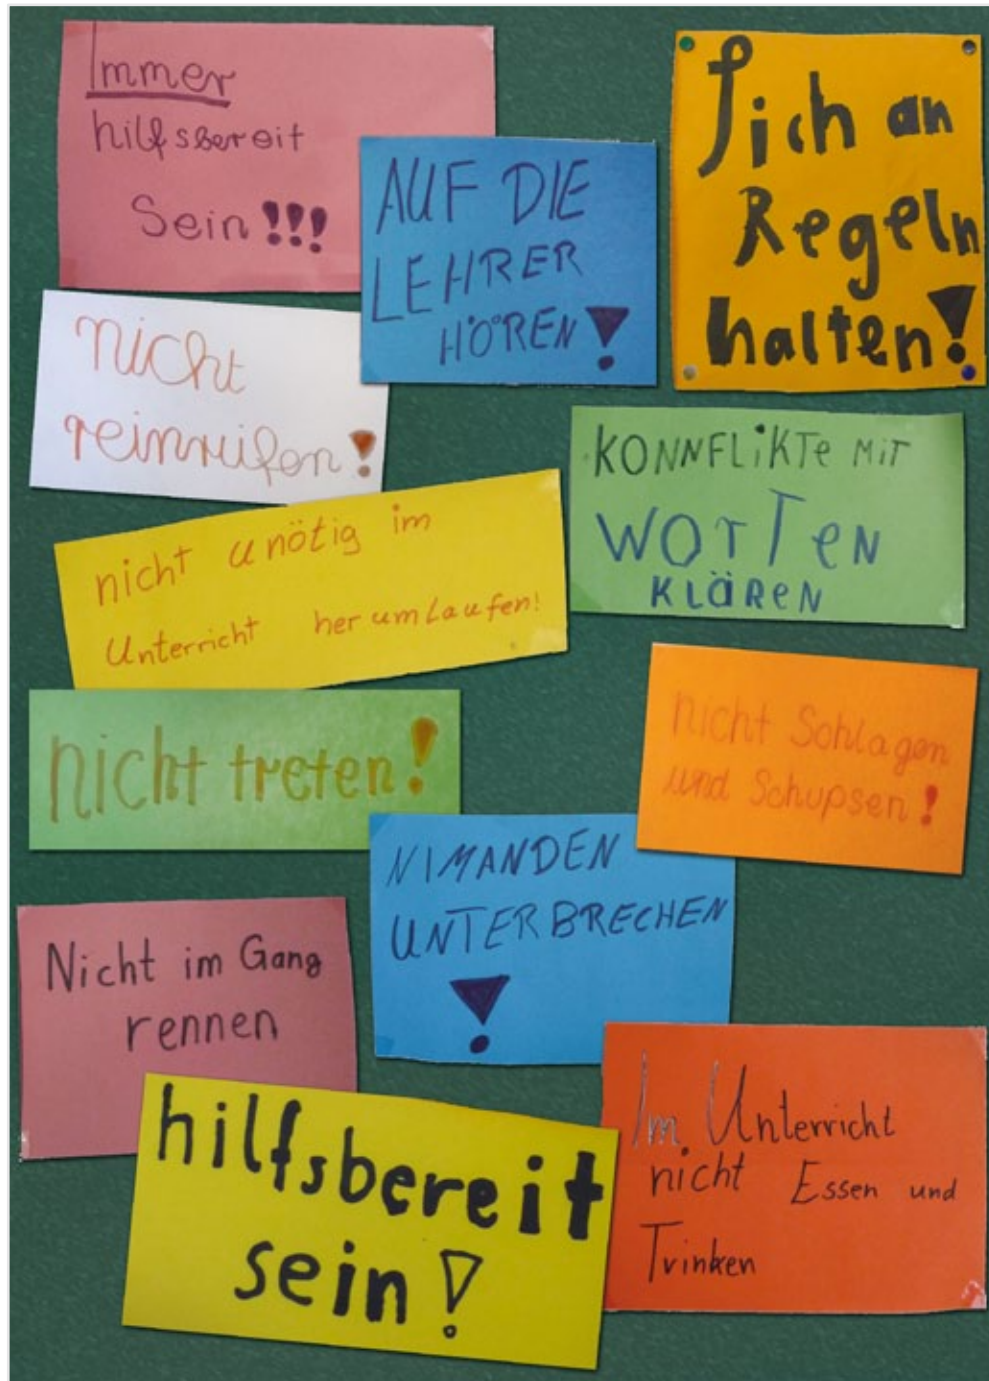 Immer
hilfsbereit
Sein!!!
AUF DIE
LEHRER
HÖREN!
Sich an
Regeln
halten!
nicht
reinrufen!
KONNFLiKTe MiT
WORTeN
KLÄReN
nicht unötig im
Unterricht herumlaufen!
nicht treten!
nicht Schlagen
und Schupsen!
NIMANDEN
UNTERBRECHEN
!
Nicht im Gang
rennen
hilfsbereit
sein!
Im Unterricht
nicht Essen und
Trinken